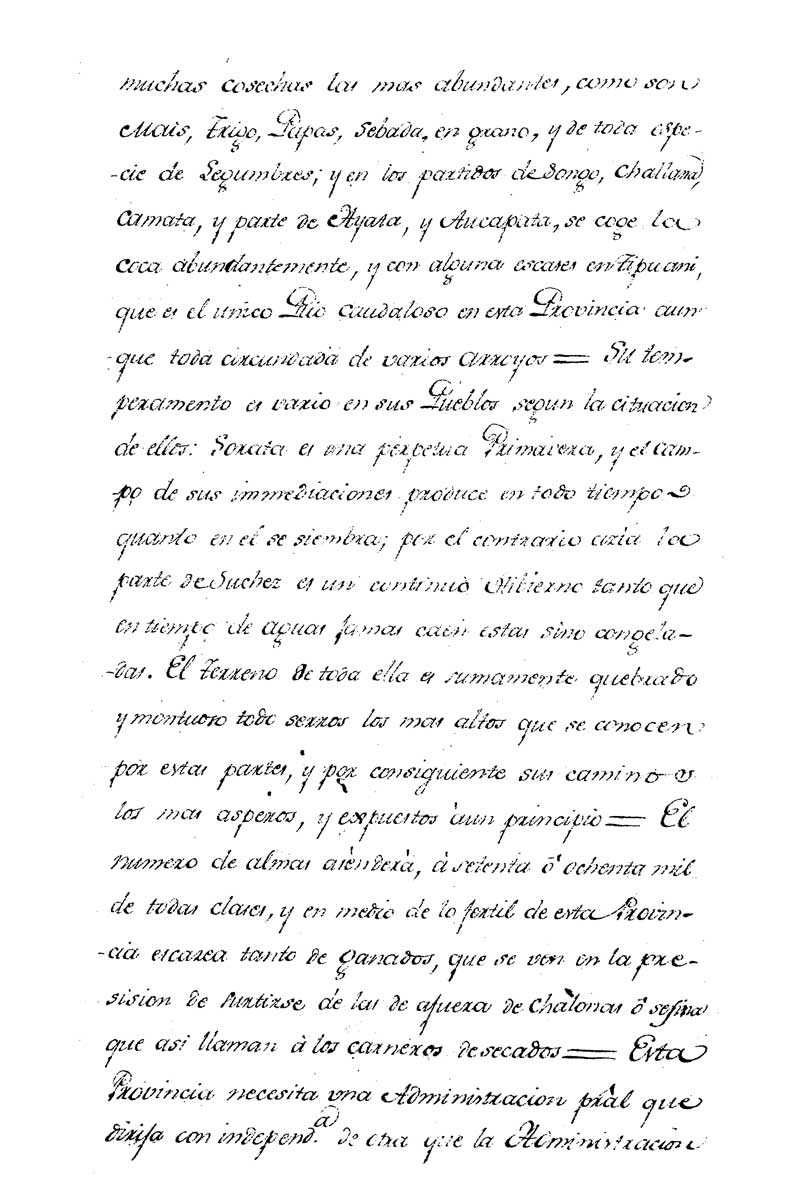 muchas cosechas las mas abundantes, como son
Mais, Trigo, Papas, Sebada, en grano, y de toda espe-
-cie de Legumbres; y en los partidos de Songo, Challana,
Camata, y parte de Ayata, y Aucapata, se coge la
Coca abundantemente, y con alguna escases en Tipuani,
que es el unico Rio Caudaloso en esta Provincia aun
-que toda circundada de varios arroyos = Su tem-
peramento es vario en sus Pueblos segun la cituacion
de ellos: Sorata es una perpetua Primavera, y el Cam-
-po de sus immediaciones produce en todo tiempo
quanto en el se siembra; por el contrario azia la
parte de Suchez es un continuo Ibierno tanto que
en tiempo de aguas jamas caen estas sino congela-
-das. El Terreno de toda ella es sumamente quebrado
y montuoso todo serros los mas altos que se conocen
por estas partes, y por consiguiente sus caminos
los mas asperos, y expuestos àun principio = El
numero de almas aiènderà, à setenta ô ochenta mil
de todas clases, y en medio de lo fertil de esta Provin-
-cia escasea tanto de ganados, que se ven en la pre-
sision de surtirse de las de afuera de Chalonas ô sesina
que asi llaman à los carneros desecados = Esta
Provincia necesita una Administracion prâl que
dirija con independ.a de otra que la Administracion